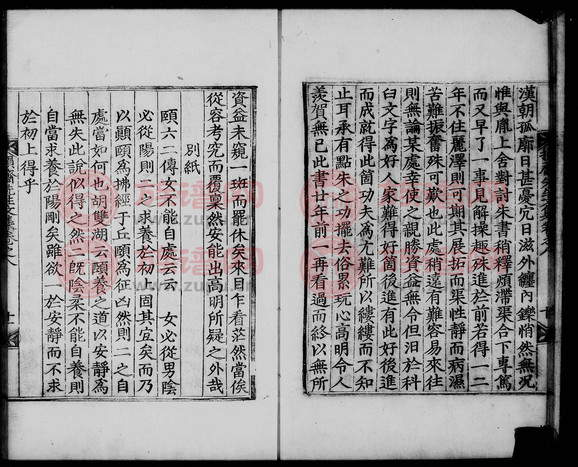 漢朝孤廟日甚憂宂日滋外纏內鑠悄然無况
惟與胤上舍對討朱書稍釋煩滯渠合下專篤
而又早了一事見解操趣殊進於前若得一二
年不住麗澤則可期其展拓而渠性靜而病濕
苦難振奮殊可歎也此處稍遠有難容易來往
則無論某處幸使之觀勝資益無令但汨於科
臼文字為好人家難得好箇後進此有此好後進
而成就得此朱夫為尤難所以縷縷而不知
止耳承有點朱之功擺去俗累玩心高明令人
羨賀無已此書廿年前一再看過而終以無所
資益未窺一斑而罷休矣來目乍看茫然當俟
從容考究而覆稟然安能出高明所疑之外哉
別紙
頤六二傳女不能自處云云 女必從男陰
必從陽則二之求養於初上固其宜矣而乃
以顚頤為拂經于丘頤為征凶然則二之自
處當如何也胡雙湖云頤養之道以安靜爲
無失此說似得之然二旣陰柔不能自養則
自當求養於陽剛矣雖欲一於安靜而不求
於初上得乎